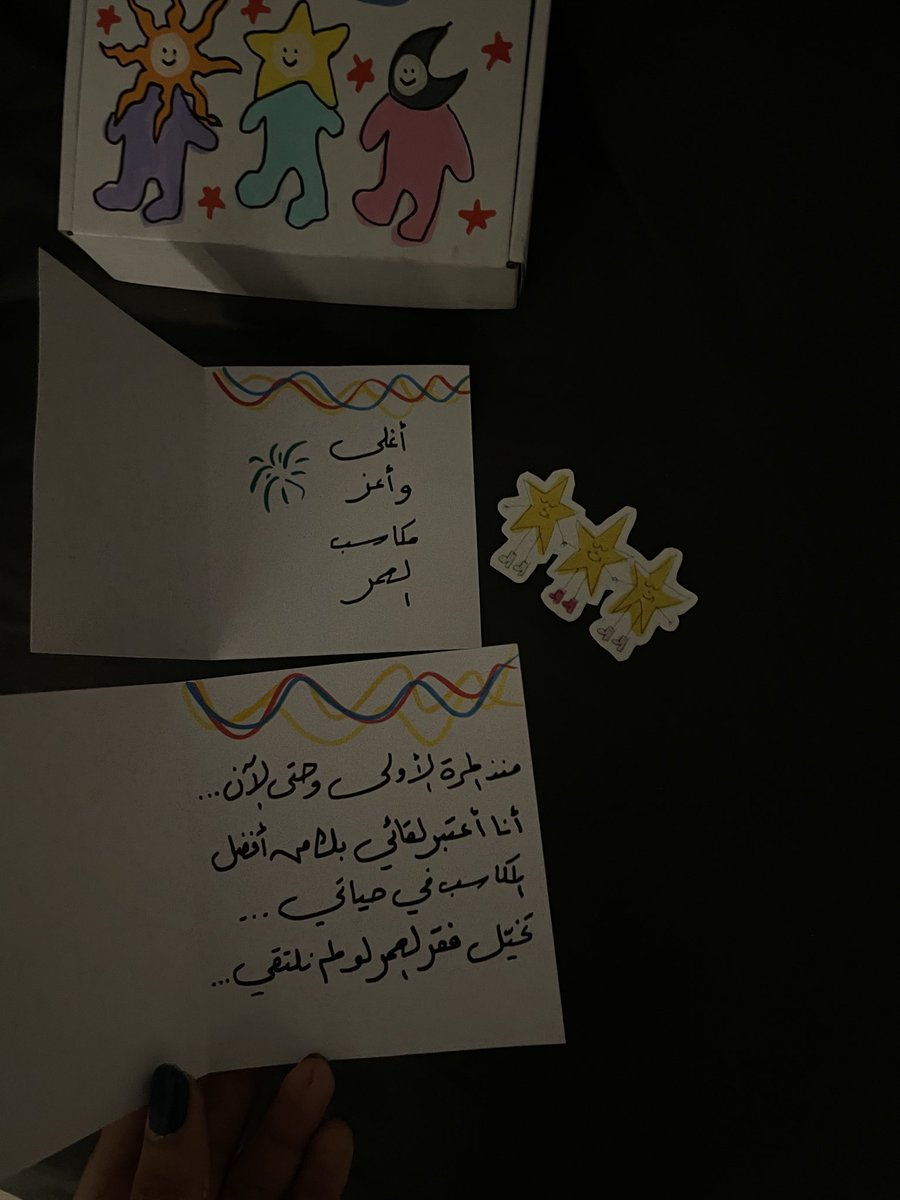 أغلى
وأعز
مكاسب
العمر
منذ المرة الأولى وحتى الآن...
أنا أعتبر لقائي بك من أفضل
المكاسب في حياتي ...
تخيّل فقر العمر لو لم نلتقي...